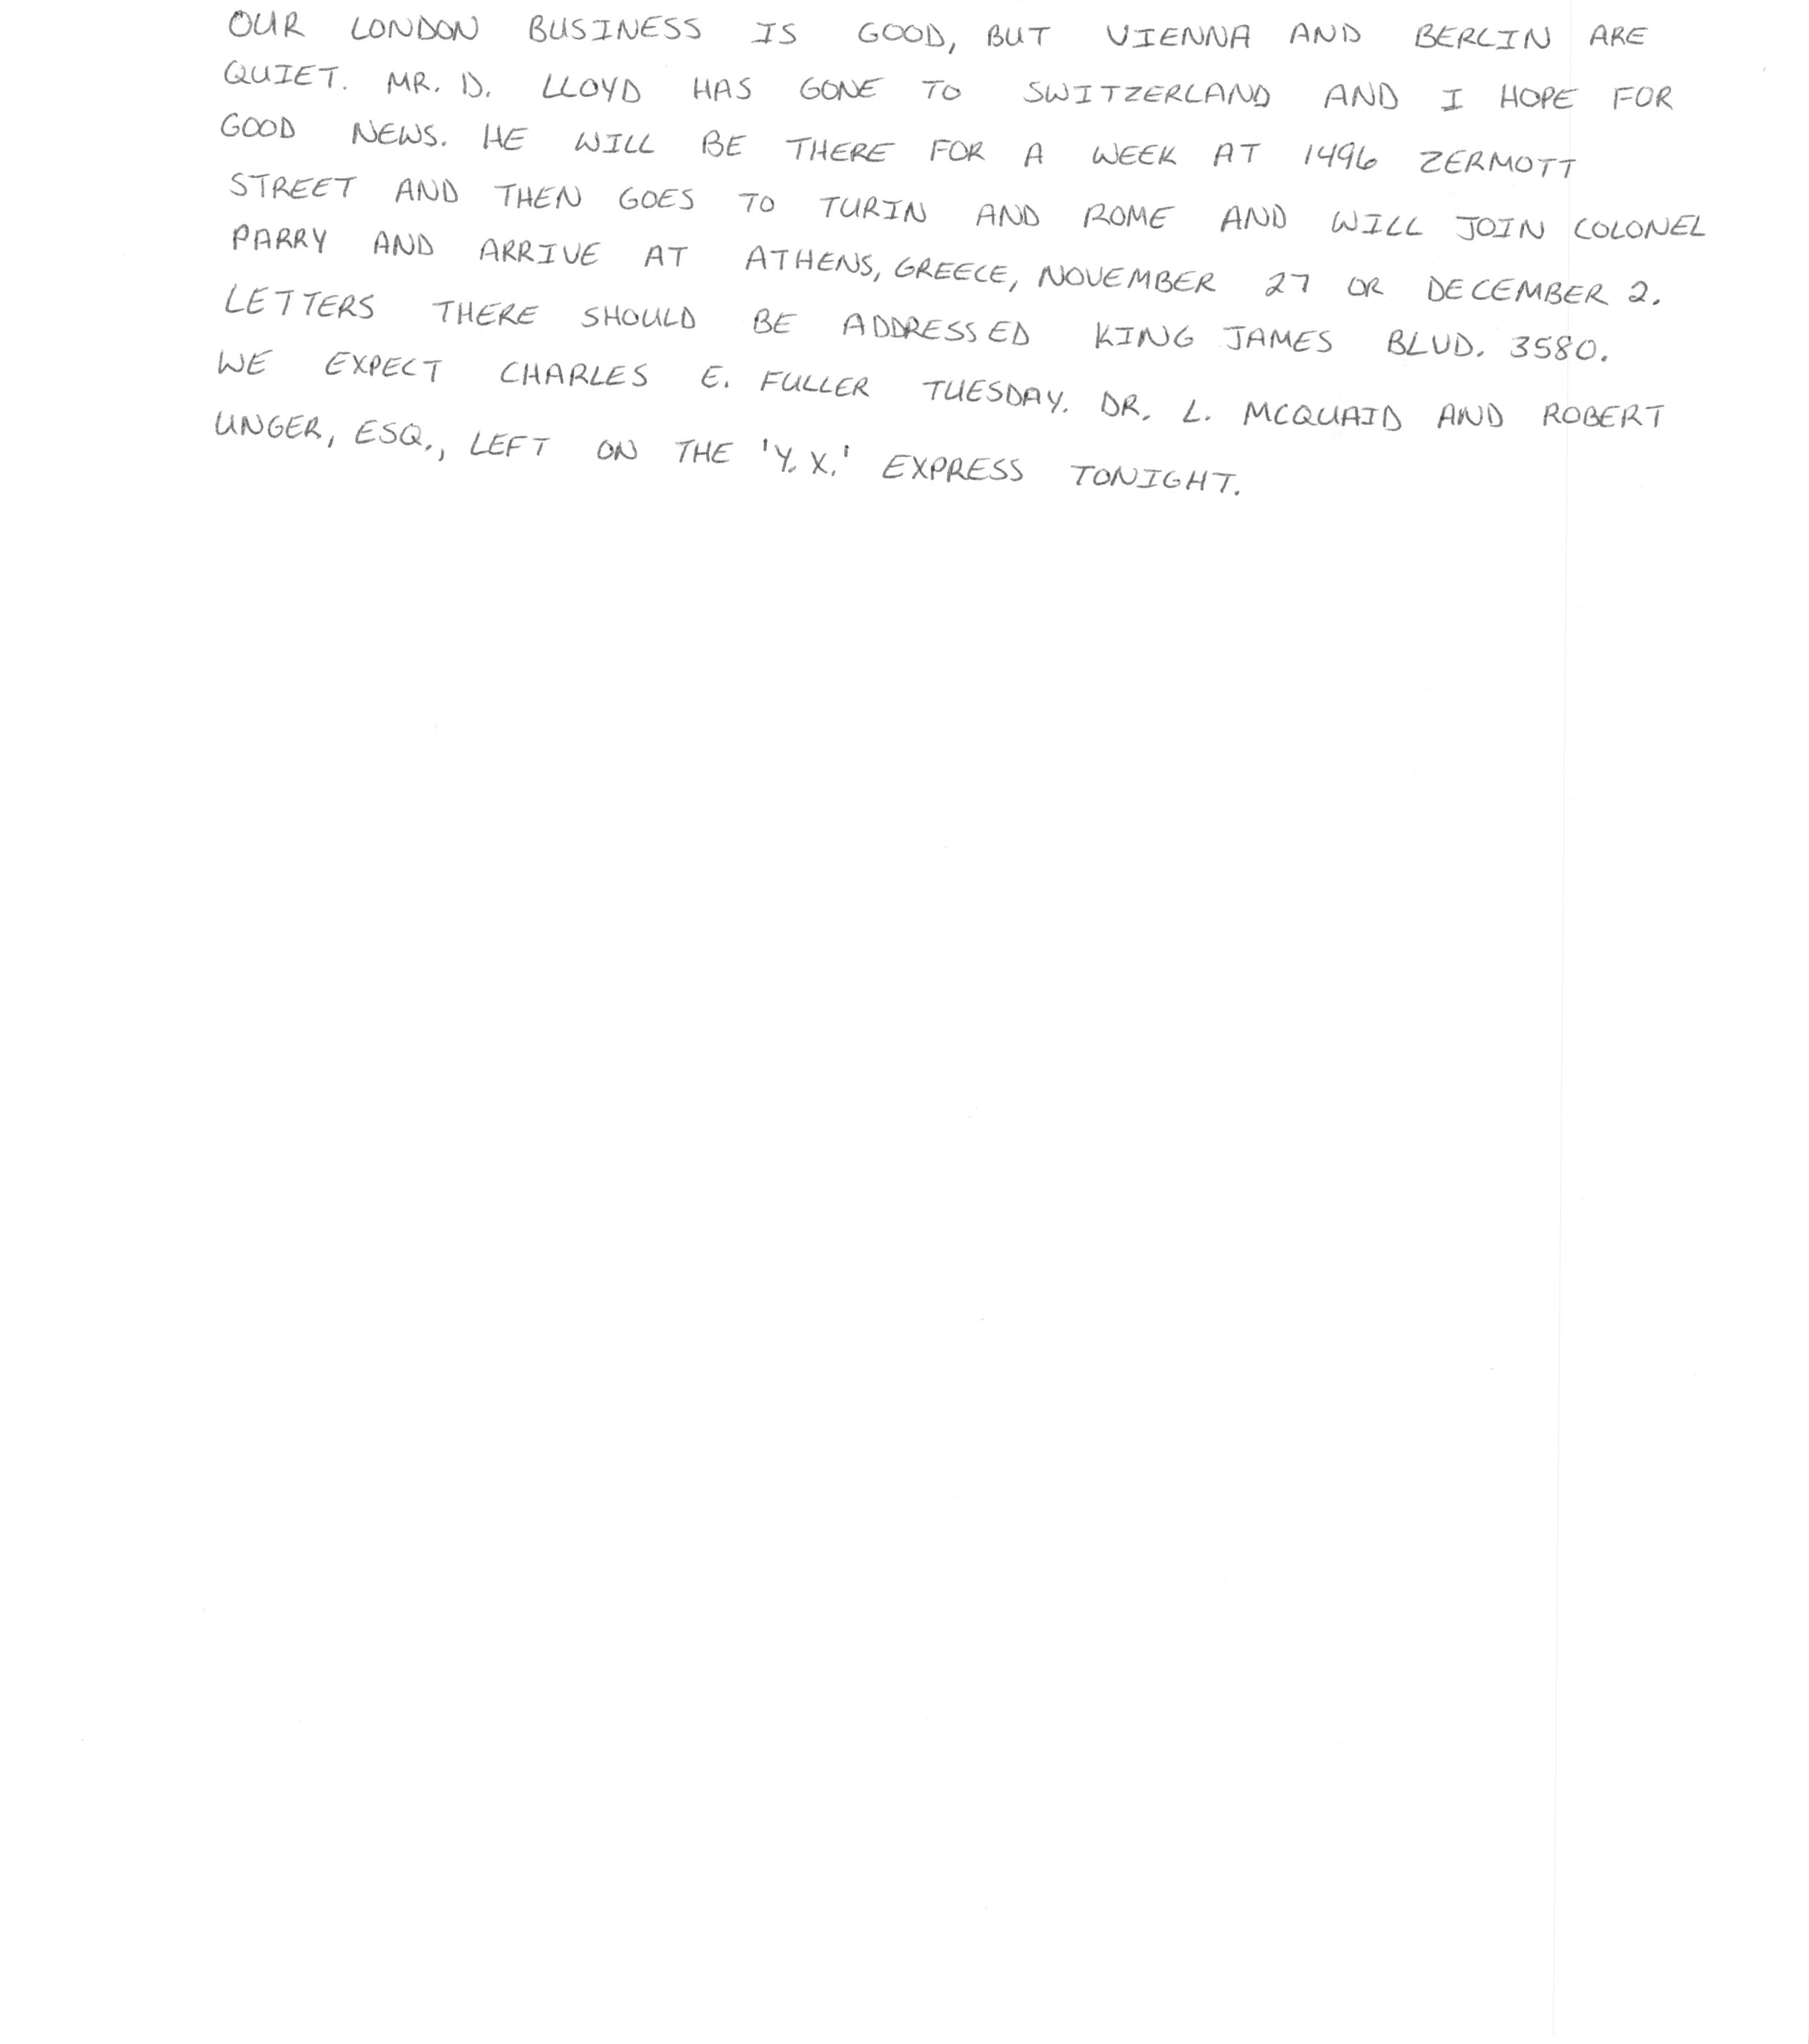 OUR LONDON BUSINESS IS GOOD, BUT VIENNA AND BERLIN ARE
QUIET. MR. D. LLOYD HAS GONE TO SWITZERLAND AND I HOPE FOR
GOOD NEWS. HE WILL BE THERE FOR A WEEK AT 1496 ZERMOTT
STREET AND THEN GOES TO TURIN AND ROME AND WILL JOIN COLONEL
PARRY AND ARRIVE AT ATHENS, GREECE, NOVEMBER 27 OR DECEMBER 2.
LETTERS THERE SHOULD BE ADDRESSED KING JAMES BLVD. 3580.
WE EXPECT CHARLES E. FULLER TUESDAY. DR. L. MCQUAID AND ROBERT
UNGER, ESQ., LEFT ON THE 'Y. X.' EXPRESS TONIGHT.